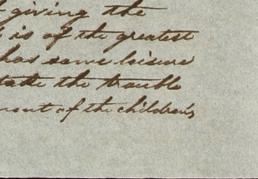 giving the
is of the greatest
has some leisure
take the trouble
ment of the children's